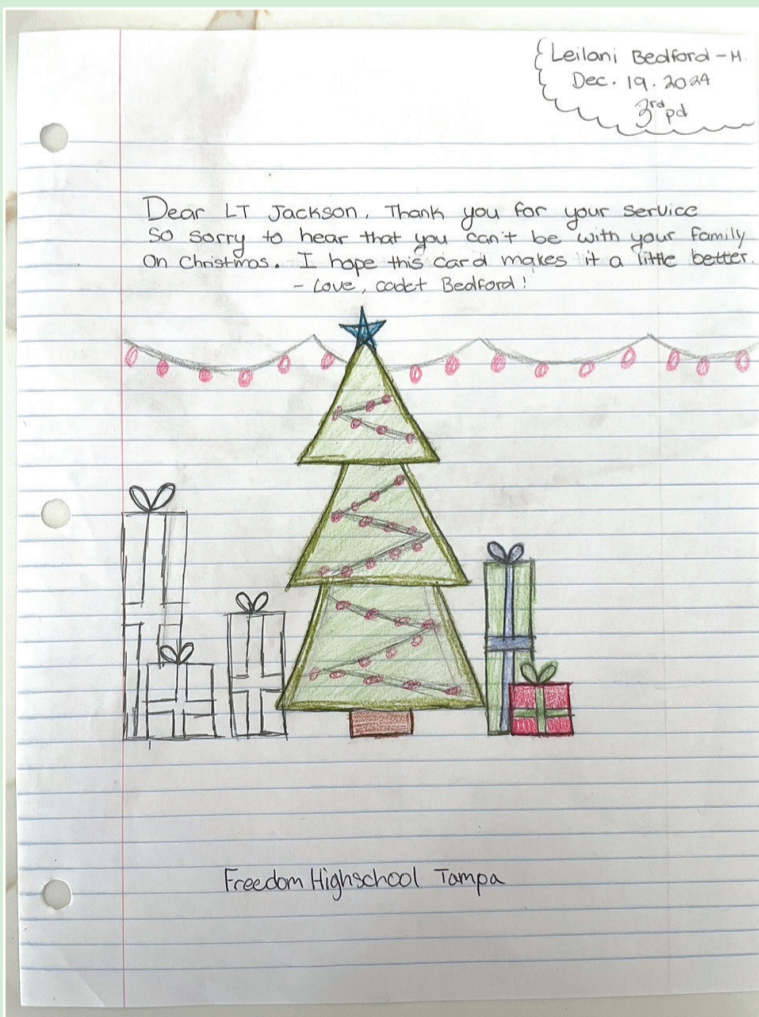 Leilani Bedford-H.
Dec. 19. 2024
3rd pd
Dear LT Jackson, Thank you for your service
So sorry to hear that you can't be with your family
On Christmas. I hope this card makes it a little better.
- Love, cadet Bedford!
Freedom Highschool Tampa